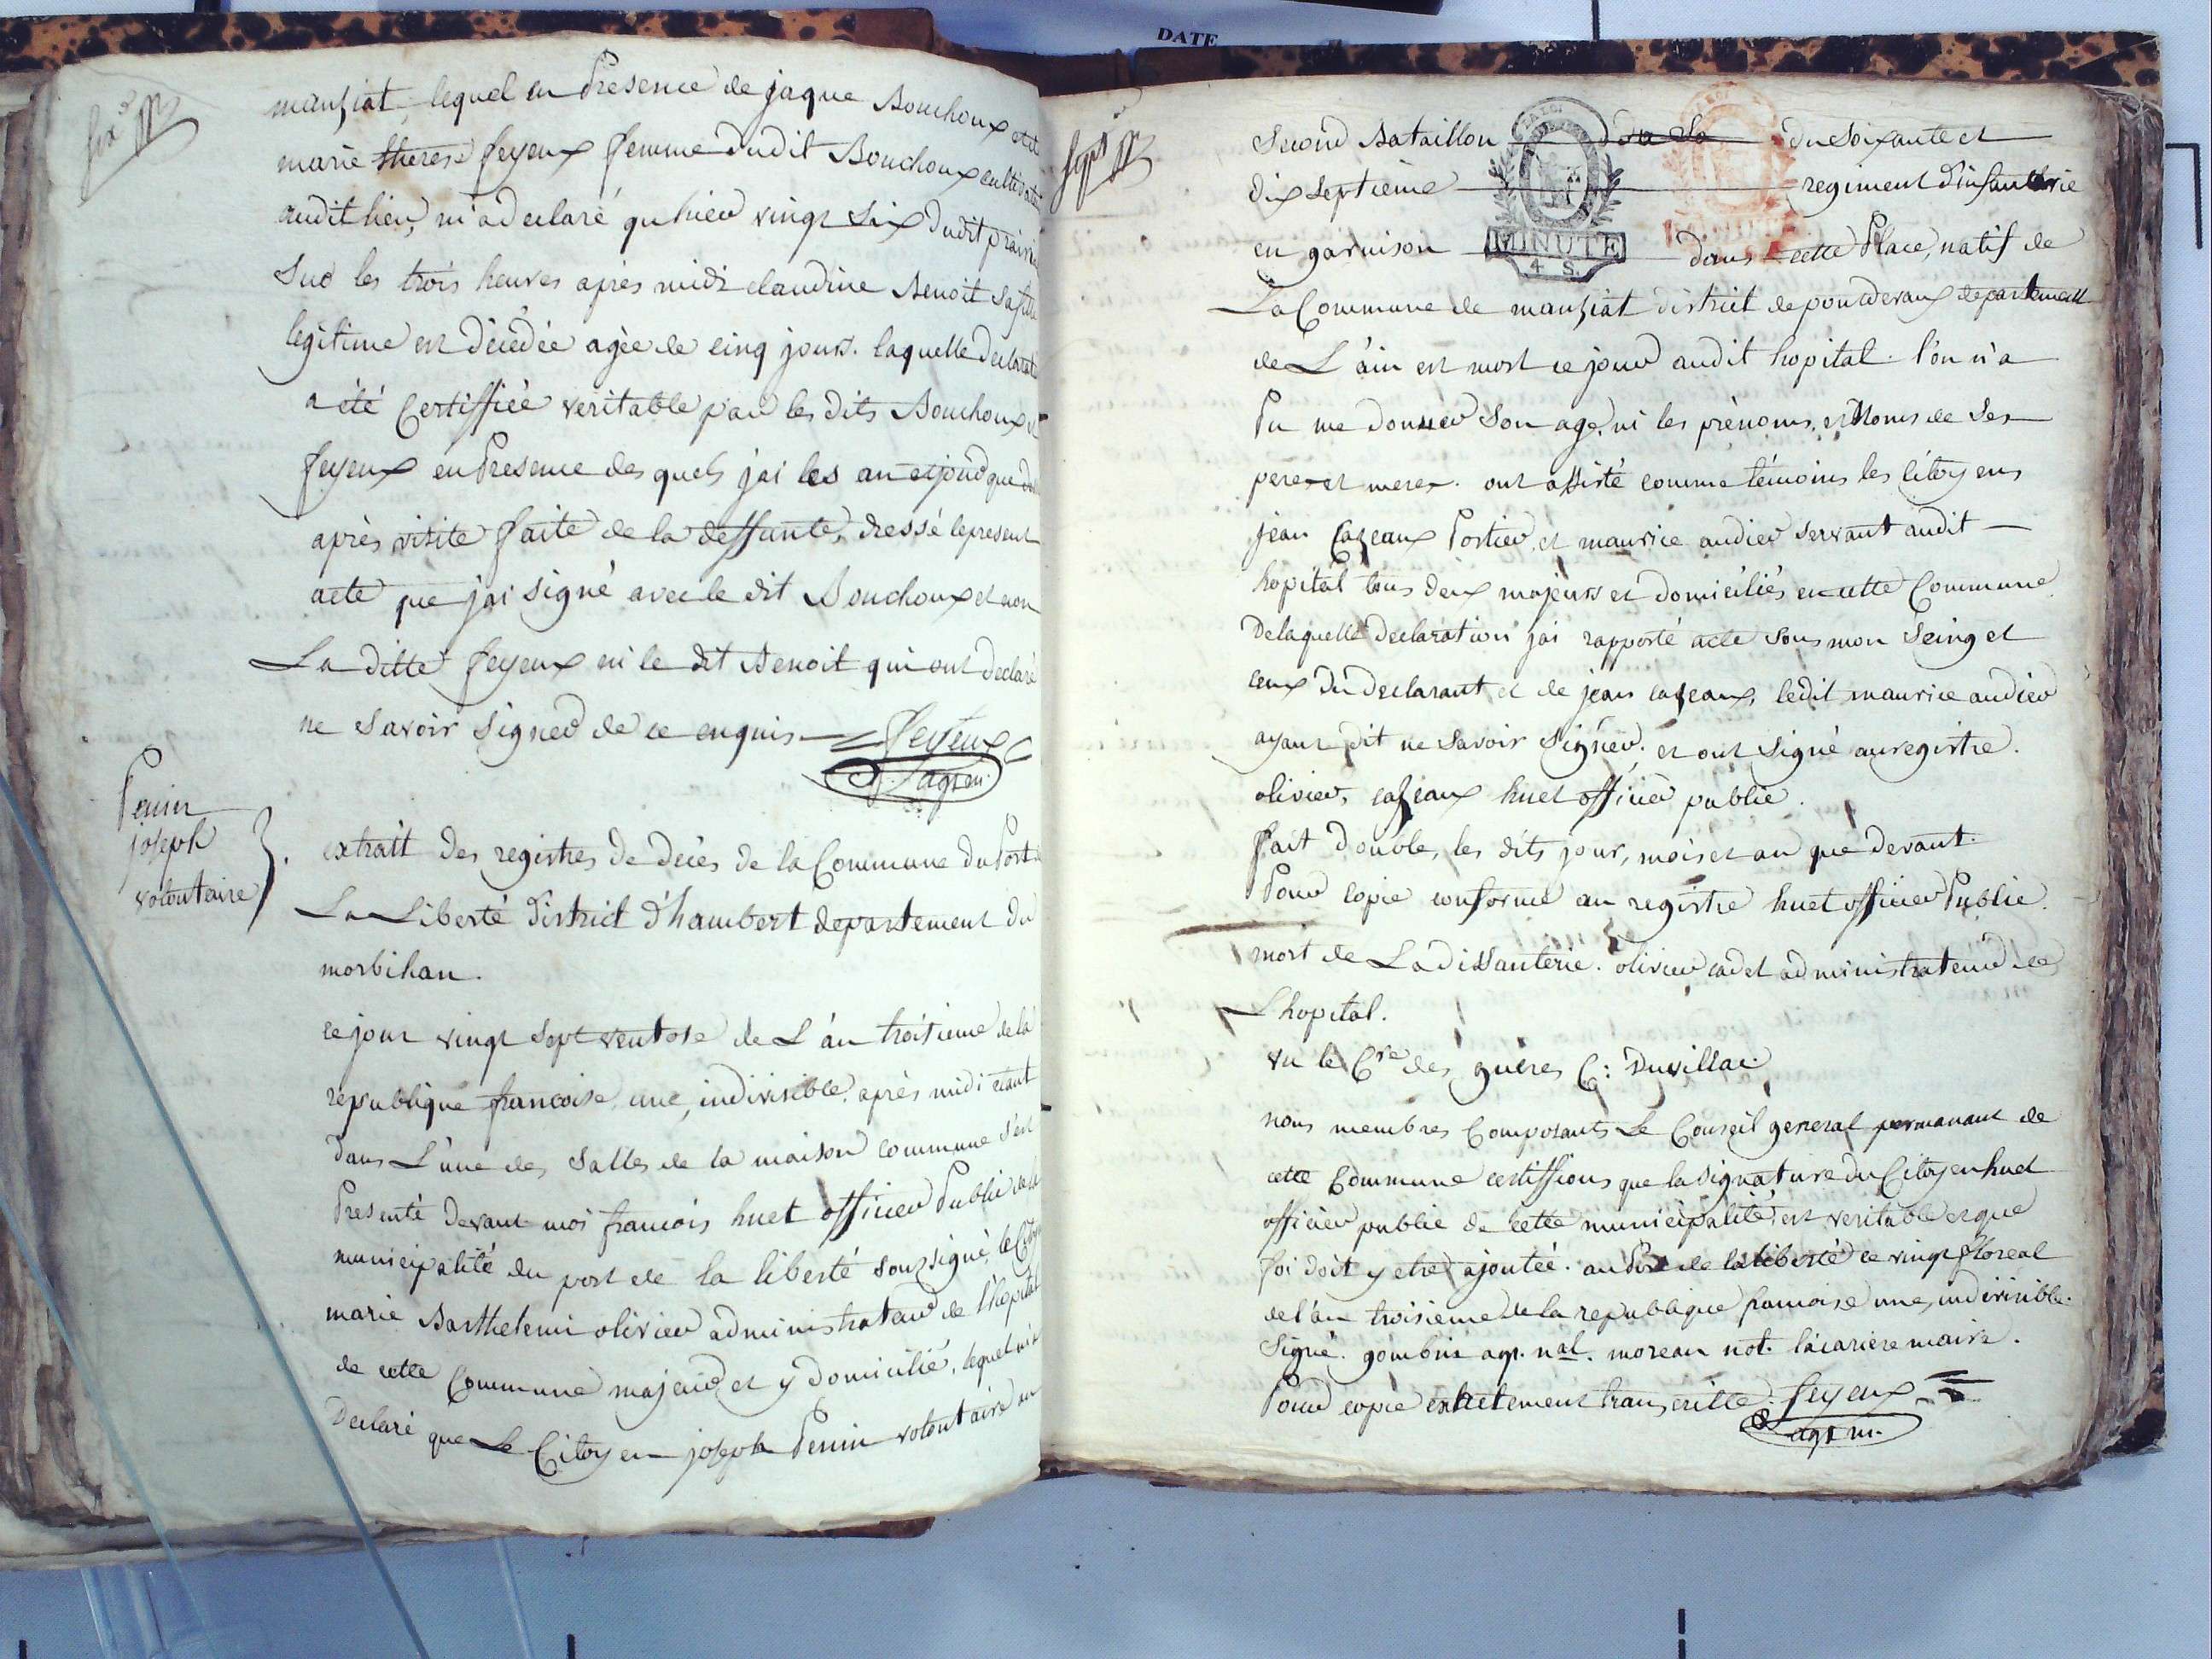 DATE
six
manziat, lequel en Presence de jaque Bouchoux et de
marie therese feyeux femme dudit Bouchoux cultivateur
audit lieu, m'a declaré qu'hier vingt six dudit prairial
Sur les trois heures après midi claudine Benoit sa fille
legitime est décédée agée de cinq jours. laquelle declarat
a été Certiffiée veritable par les dits Bouchoux et
feyeux en Presence des quels jai les an et jour que
après visite faite de la deffunte, dressé le present
acte que jai signé avec le dit Bouchoux et non
La ditte feyeux ni le dit Benoit qui ont declaré
ne Savoir Signer de ce enquis feyeux
agt m.
Penin
joseph
volontaire
extrait des registres de décès de la Commune du Port
La Liberté district d'hambert departement du
morbihan.
ce jour vingt sept ventose de L'an troisieme de la
republique francoise une, indivisible, après midi étant
dans L'une des Salles de la maison commune s'est
Presenté devant moi francois huet officier Public de la
municipalité du port de la liberté soussigné, le Citoyen
marie Barthelemi olivier administrateur de l'hopital
de cette Commune majeur et y domicilié, lequel m'a
Declaré que Le Citoyen joseph Penin volontaire au
sept
Second Bataillon du Soixante et
dix Septieme regiment d'infanterie
en garnison dans cette Place, natif de
MINUTE
4 S.
La Commune de manziat district de pontdevaux departement
de L'ain est mort ce jour audit hopital. l'on n'a
Pu me donner Son age, ni les prénoms, et Noms de Ses
pere et mere. ont assisté comme témoins les Citoyens
jean Cazeaux Portier, et maurice audier servant audit
hopital tous deux majeurs et domiciliés en cette Commune.
De laquelle declaration jai rapporté acte sous mon Seing et
ceux du declarant et de jean cazeaux, ledit maurice audier
ayant dit ne Savoir Signer, et ont Signé au registre.
olivier, cazeaux huet officier public.
fait double, les dits jour, mois et an que devant.
Pour copie conforme au registre huet officier Public.
mort de La dissanterie. olivier cadet administrateur de
L'hopital.
vu le Cre des guères C: Duvillac.
nous membres Composants Le Conseil general permanant de
cette Commune certiffions que la signature du Citoyen huet
officier public de cette municipalité est veritable et que
foi doit y etre ajoutée. au Port de la liberté ce vingt floreal
de l'an troisieme de la republique francoise une, indivisible.
Signé. gombris agt. nal. moreau not. lacariere maire.
Pour copie exactement transcritte. feyeux
agt m.